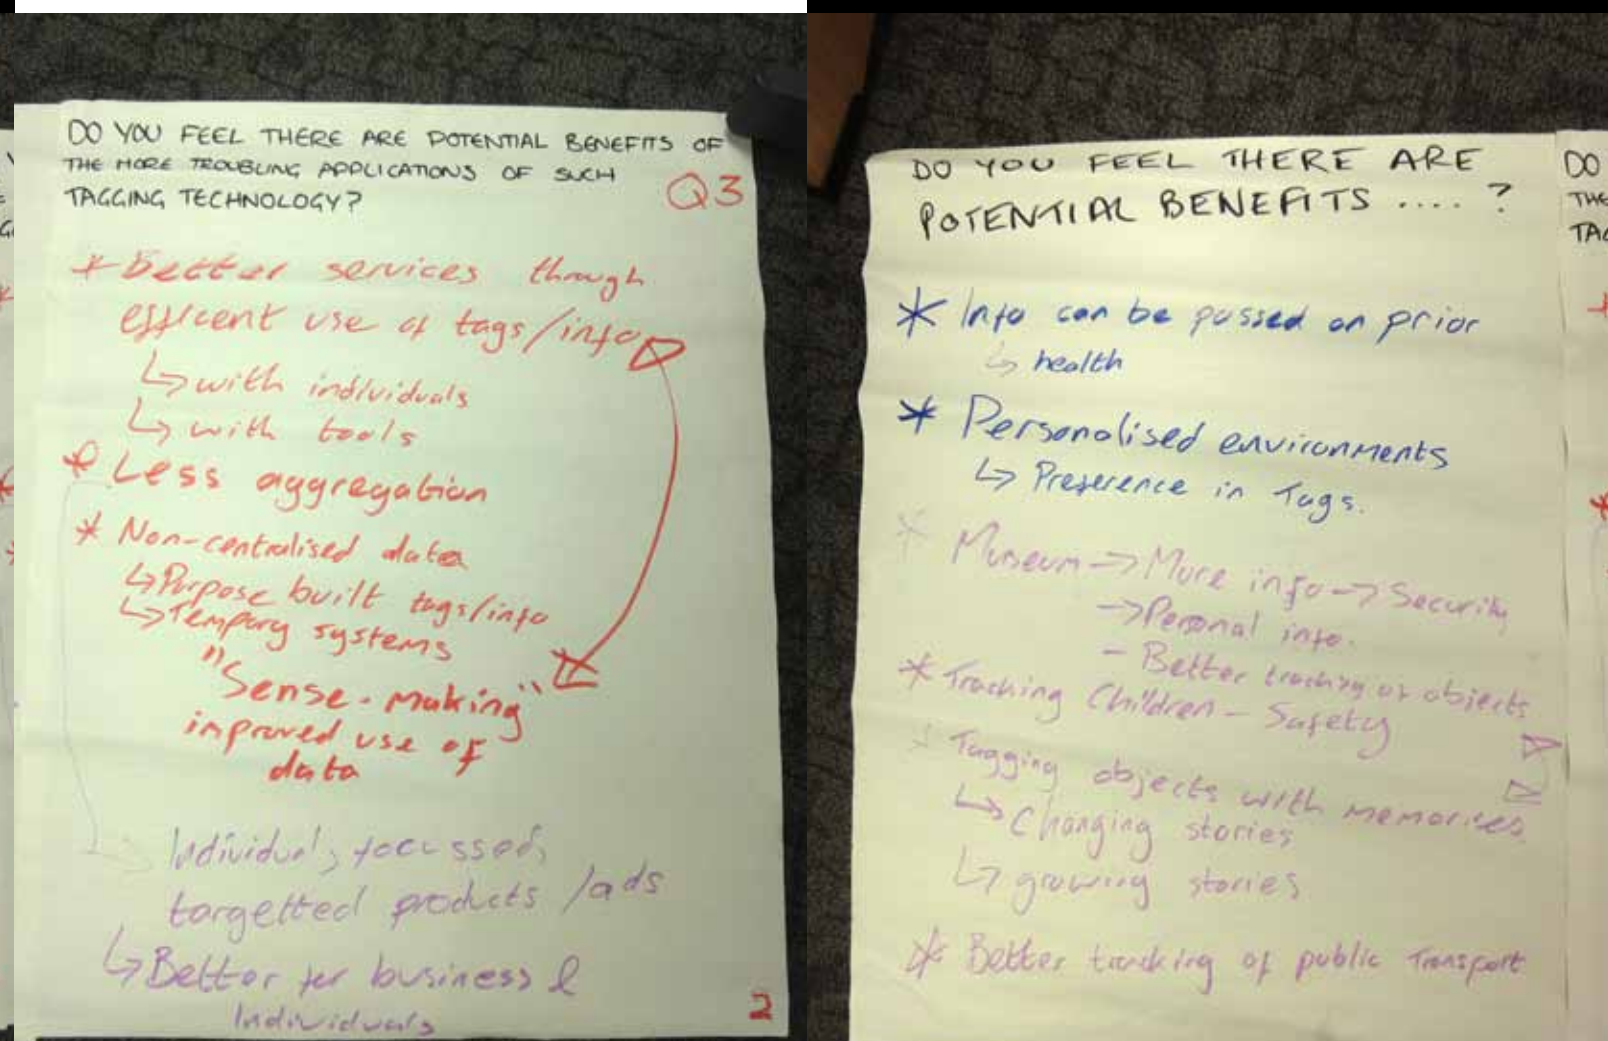 DO YOU FEEL THERE ARE POTENTIAL BENEFITS OF
THE MORE TROUBLING APPLICATIONS OF SUCH
TAGGING TECHNOLOGY?
Q3
* Better services through
efficent use of tags/info
↳ with individuals
↳ with tools
* Less aggregation
* Non-centralised data
↳ Purpose built tags/info
↳ Tempory systems
"Sense-making"
improved use of
data
Individual, focussed,
targetted products /ads
↳ Better for business &
Individuals
2
DO YOU FEEL THERE ARE
POTENTIAL BENEFITS .... ?
* Info can be passed on prior
↳ health
* Personalised environments
↳ Preference in Tags.
* Museum → More info → Security
→ Personal info.
- Better tracking of objects
* Tracking Children - Safety
* Tagging objects with memories
↳ Changing stories
↳ growing stories
* Better tracking of public Transport
DO
THE
TAG